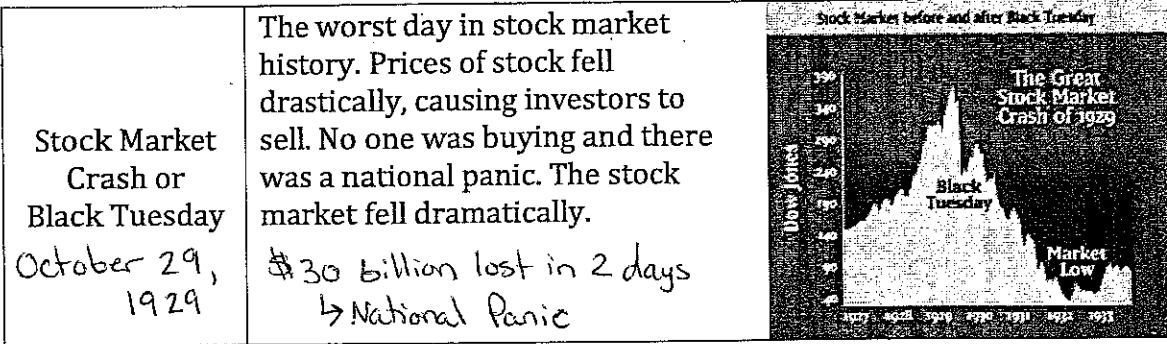 Stock Market
Crash or
Black Tuesday
October 29,
1929
The worst day in stock market
history. Prices of stock fell
drastically, causing investors to
sell. No one was buying and there
was a national panic. The stock
market fell dramatically.
$30 billion lost in 2 days
↳ National Panic
Stock Market before and after Black Tuesday
The Great
Stock Market
Crash of 1929
Dow Jones
390
340
290
240
190
140
90
40
Black
Tuesday
Market
Low
1927 1928 1929 1930 1931 1932 1933